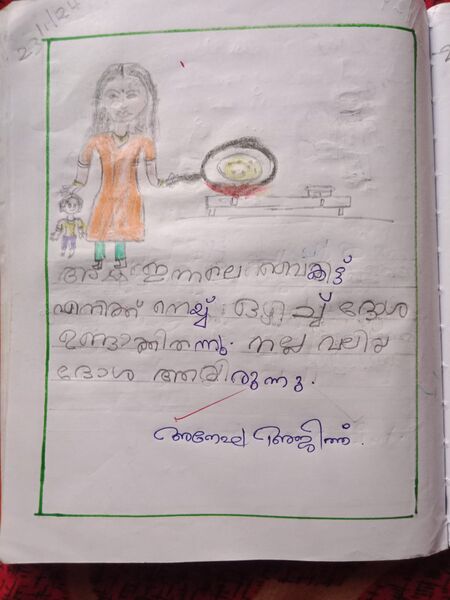 23/1/24
അമ്മ ഇന്നലെ വൈകിട്ട്
എനിക്ക് നെയ്യ് ഒഴിച്ച് ദോശ
ഉണ്ടാക്കിതന്നു. നല്ല വലിയ
ദോശ ആയിരുന്നു.
അജിത്ത്.